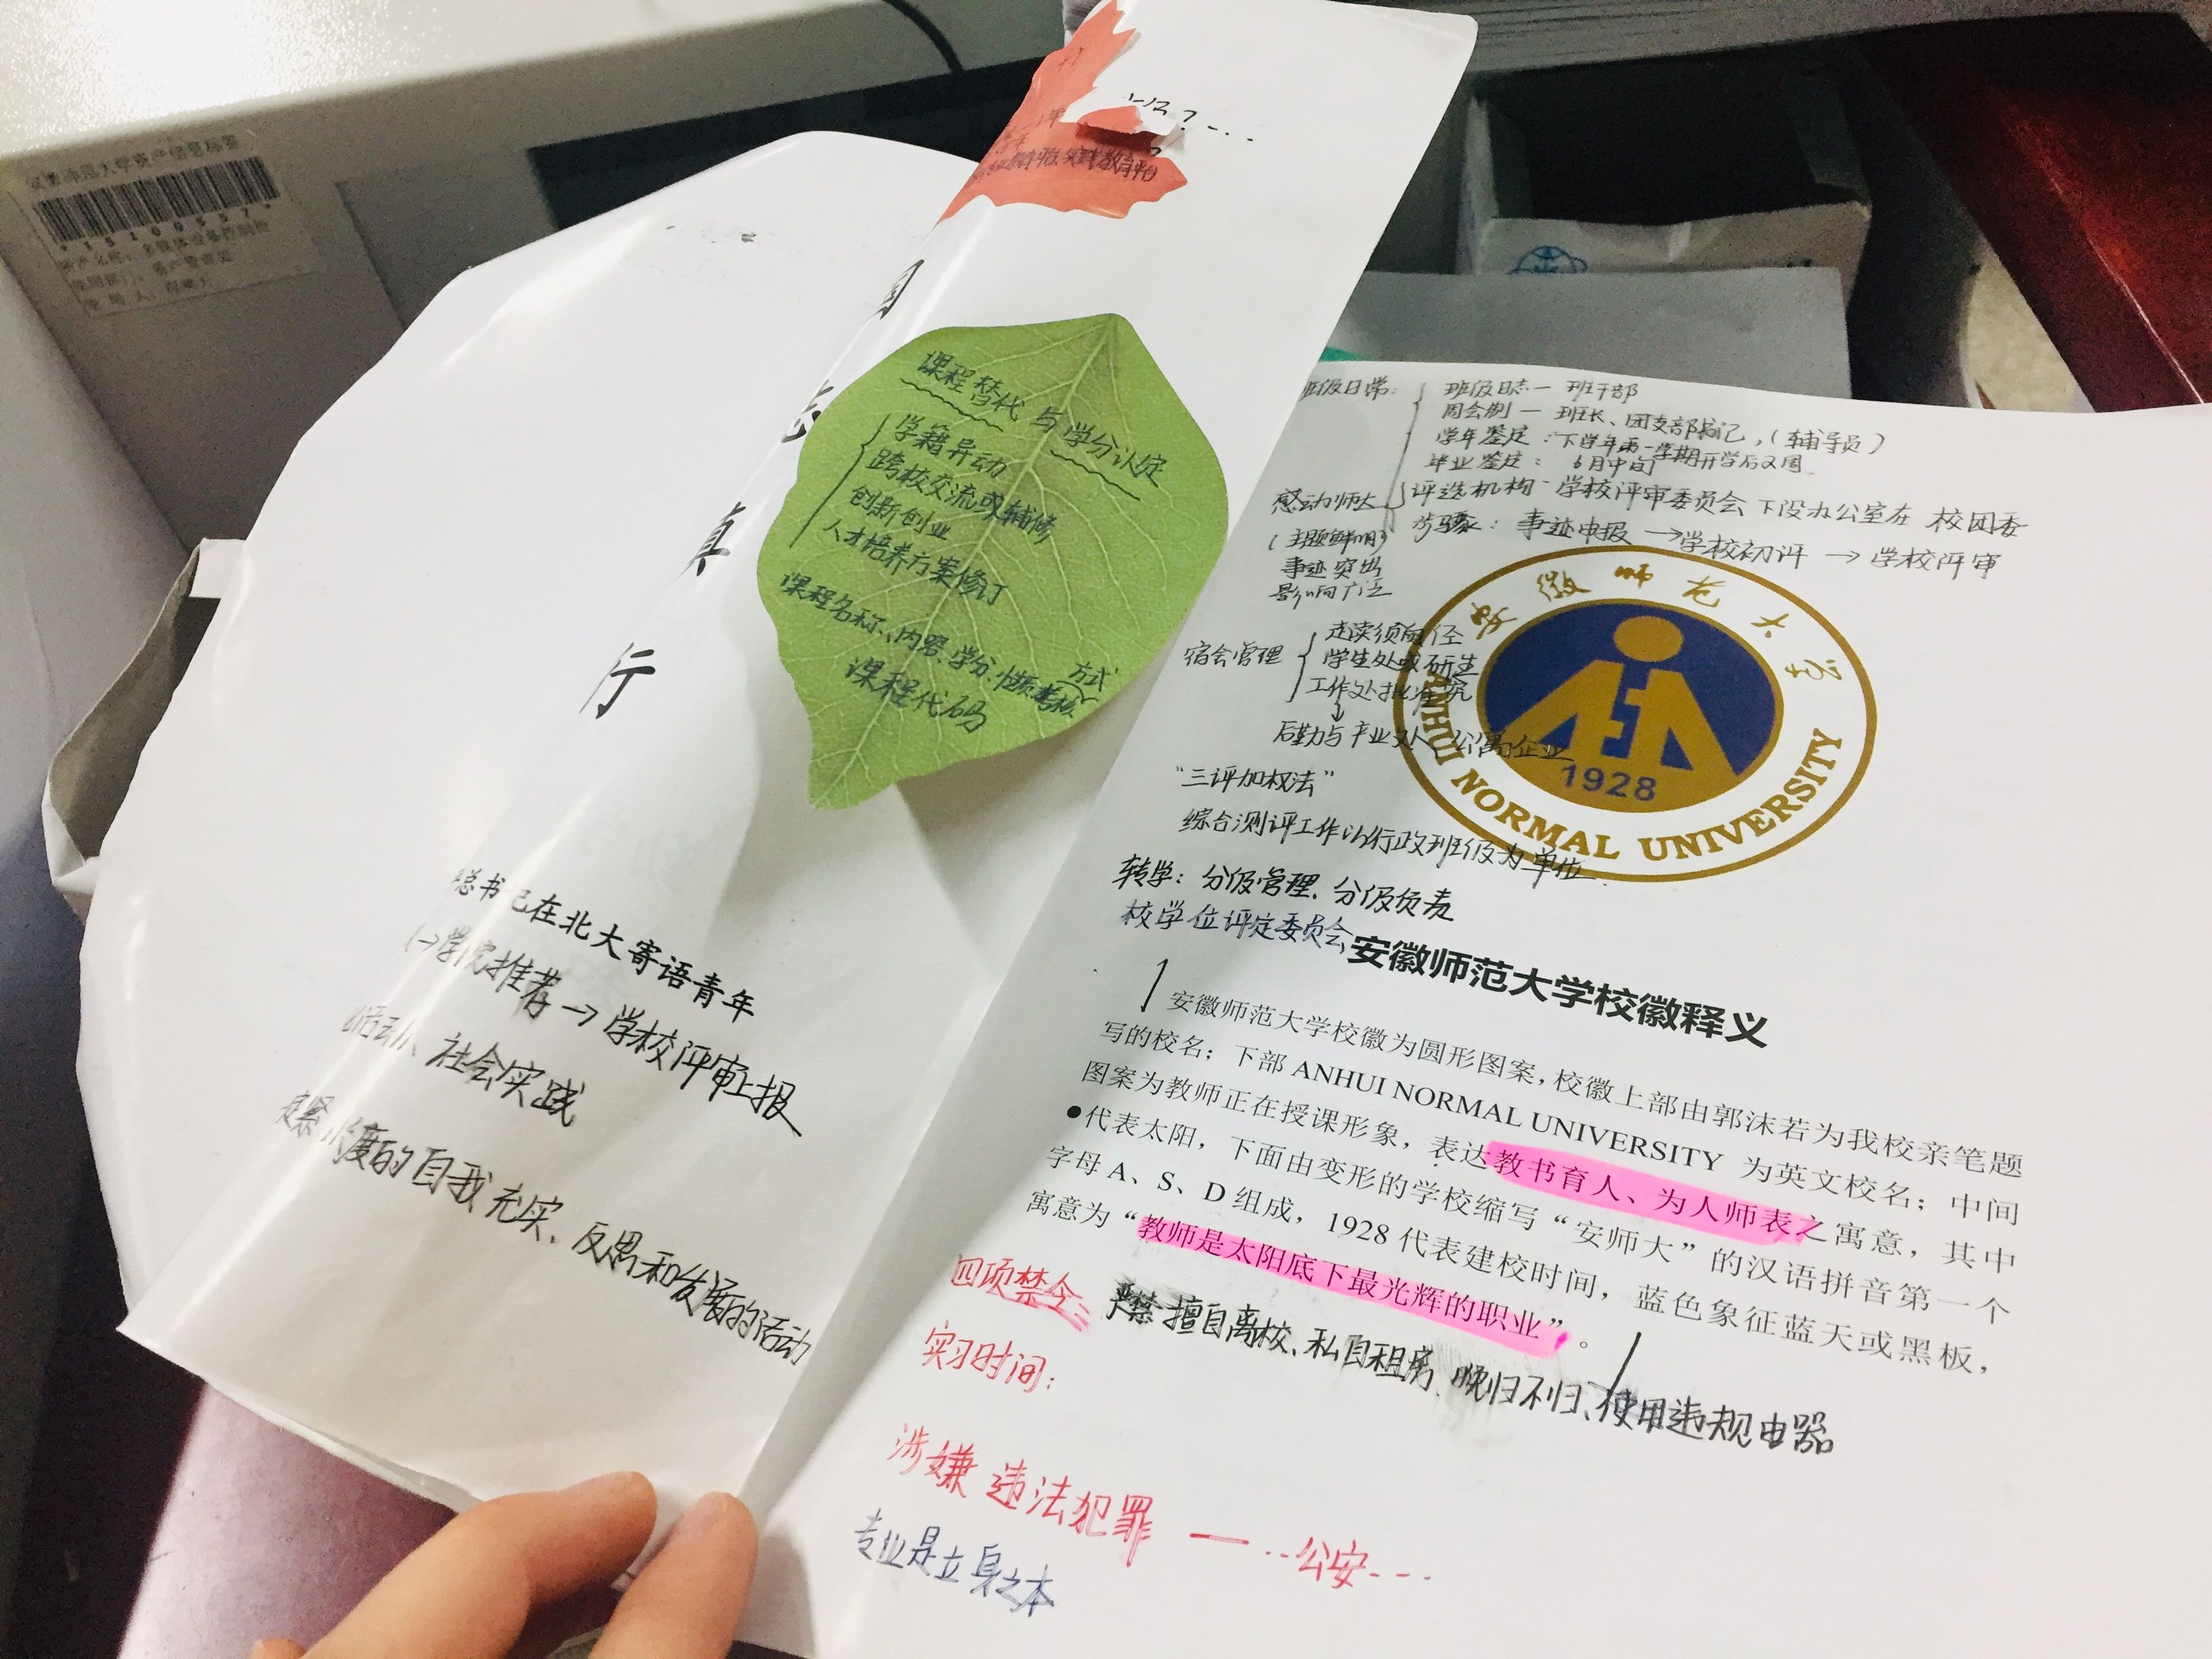 安徽师范大学资产信息标签
*15100557*
国
志
真
行
课程替代与学分认定
学籍异动
跨校交流或辅修
创新创业
人才培养方案修订
课程名称、内容、学分、性质、考核方式
课程代码
总书记在北大寄语青年
学院推荐→学校评审上报
社会实践
度的自我充实、反思和发展的活动
班级日常:
班级日志一 班干部
周会制 一 班长、团支部书记,(辅导员)
学年鉴定:下学年第一学期开学后2周
毕业鉴定: 6月中旬
感动师大
评选机构 学校评审委员会下设办公室在 校团委
步骤: 事迹申报→学校初评→学校评审
(主题鲜明)
事迹突出
影响广泛
宿舍管理
走读须
学生处或研
工作处批准
后勤与产业处 公寓企业
“三评加权法”
综合测评工作以行政班级为单位.
转学: 分级管理、分级负责
校学位评定委员会
安徽师范大学
1928
ANHUI NORMAL UNIVERSITY
安徽师范大学校徽释义
安徽师范大学校徽为圆形图案,校徽上部由郭沫若为我校亲笔题
写的校名;下部 ANHUI NORMAL UNIVERSITY 为英文校名;中间
图案为教师正在授课形象,表达教书育人、为人师表之寓意,其中
●代表太阳,下面由变形的学校缩写“安师大”的汉语拼音第一个
字母 A、S、D 组成,1928 代表建校时间,蓝色象征蓝天或黑板,
寓意为“教师是太阳底下最光辉的职业”。
四项禁令: 严禁擅自离校、私自租房、晚归不归、使用违规电器
实习时间:
涉嫌 违法犯罪 — ··公安---
专业是立身之本